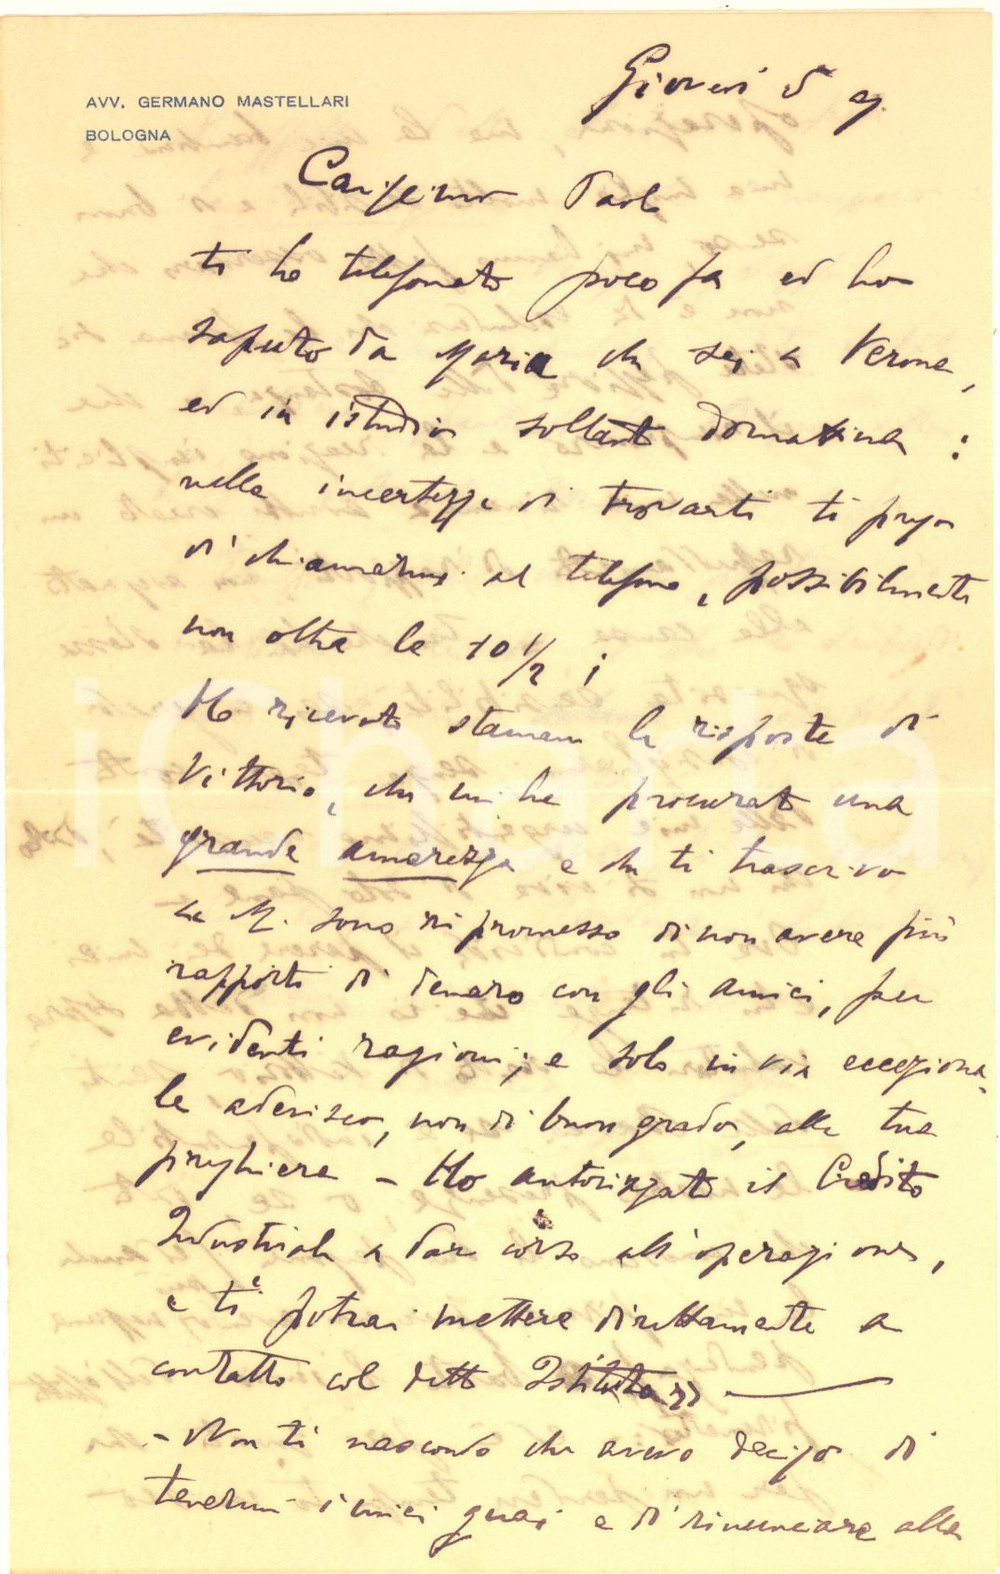 AVV. GERMANO MASTELLARI
BOLOGNA
Giovedì 5
Carissimo Paolo
ti ho telefonato poco fa ed ho
saputo da Maria che sei a Verona,
ed in istudio soltanto domattina :
nella incertezza di trovarti ti prego
di chiamarmi al telefono, possibilmente
non oltre le 10 1/2 ;
Ho ricevuto stamani la risposta di
Vittorio, che mi ha procurato una
grande amarezza e che ti trascrivo
" M. sono ripromesso di non avere più
rapporti di denaro con gli amici, per
evidenti ragioni; e solo in via ecceziona-
le aderisco, non di buon grado, alla tua
preghiera - Ho autorizzato il Credito
Industriale a dar corso all'operazione,
e ti potrai mettere direttamente a
contatto col detto Istituto "
- Non ti nascondo che avevo deciso di
tenermi i miei guai e di rinunciare alla